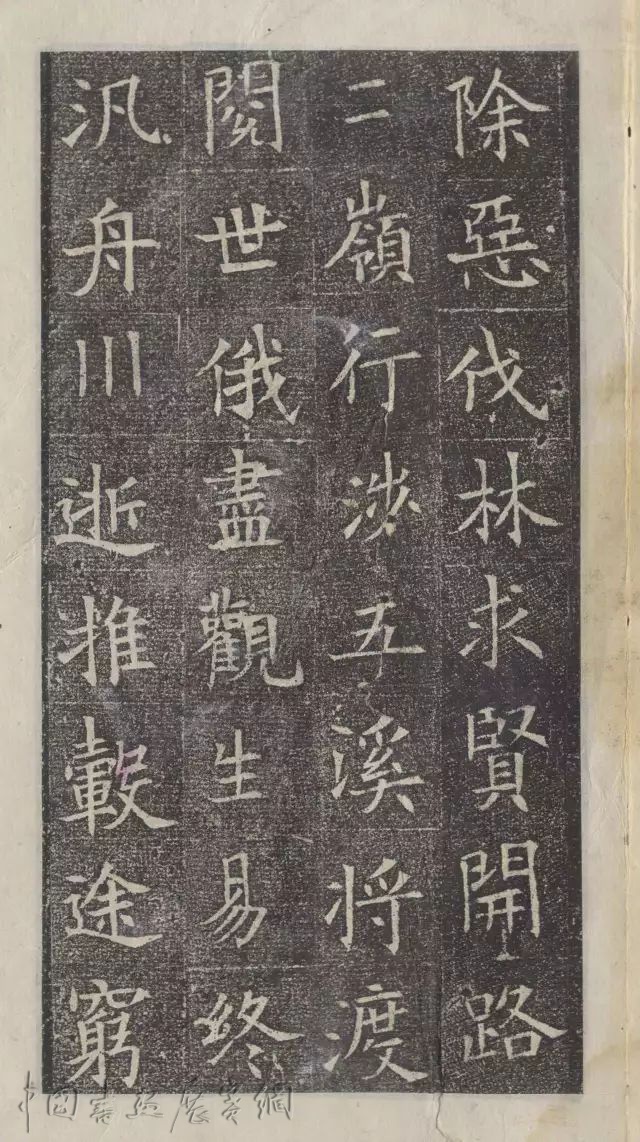 除惡伐林求賢開路
二嶺行涉五溪將渡
閱世俄盡觀生易終
汎舟川逝推轂途窮
中國書法展賽網